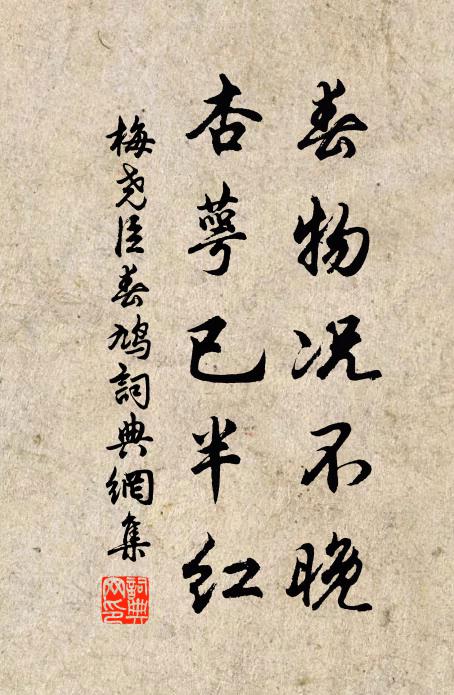 春物况不晚
杏萼已半红
梅尧臣春鸠詞典網集
詞典網印